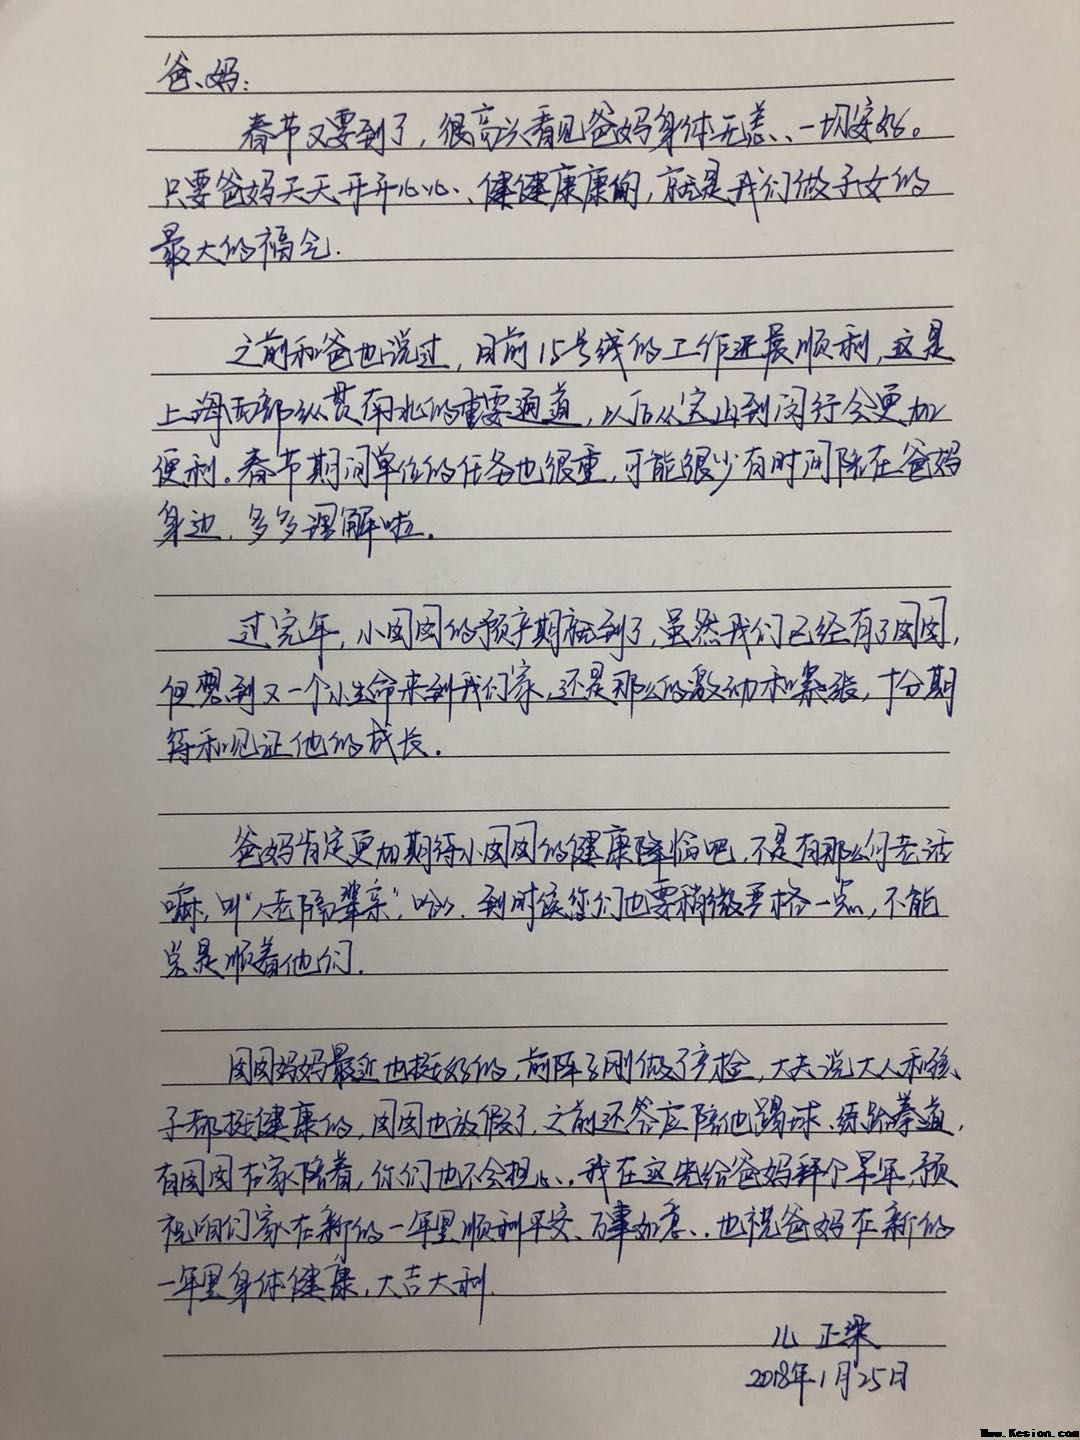 爸、妈：
春节又要到了，很高兴看见爸妈身体无恙、一切安好。
只要爸妈天天开开心心、健健康康的，就是我们做子女的
最大的福气.
之前和爸也说过，目前15号线的工作进展顺利，这是
上海西部纵贯南北的重要通道，以后从宝山到闵行会更加
便利。春节期间单位的任务也很重，可能很少有时间陪在爸妈
身边，多多理解啦。
过完年，小囡囡的预产期就到了，虽然我们已经有了囡囡，
但想到又一个小生命来到我们家，还是那么的激动和紧张，十分期
待和见证他的成长。
爸妈肯定更加期待小囡囡的健康降临吧，不是有那么句老话
嘛，叫“人老隔辈亲”，哈哈. 到时候您们也要稍微严格一点，不能
总是顺着他们.
囡囡妈妈最近也挺好的，前阵子刚做了产检，大夫说大人和孩
子都挺健康的，囡囡也放假了，之前还答应陪他踢球、练跆拳道，
有囡囡在家陪着，你们也不会担心，我在这先给爸妈拜个早年，预
祝咱们家在新的一年里顺利平安、万事如意，也祝爸妈在新的
一年里身体健康，大吉大利.
儿 正梁
2018年1月25日
Www.Kesion.com